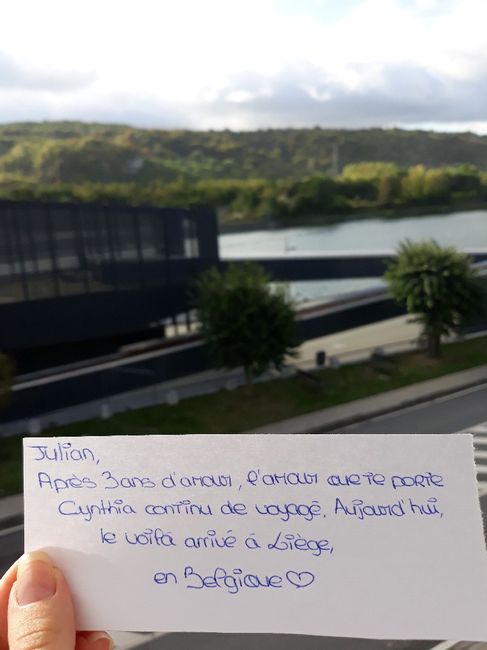 Julian,
Après 3 ans d'amour, l'amour que te porte
Cynthia continu de voyagé. Aujourd'hui,
le voilà arrivé à Liège,
en Belgique ♡